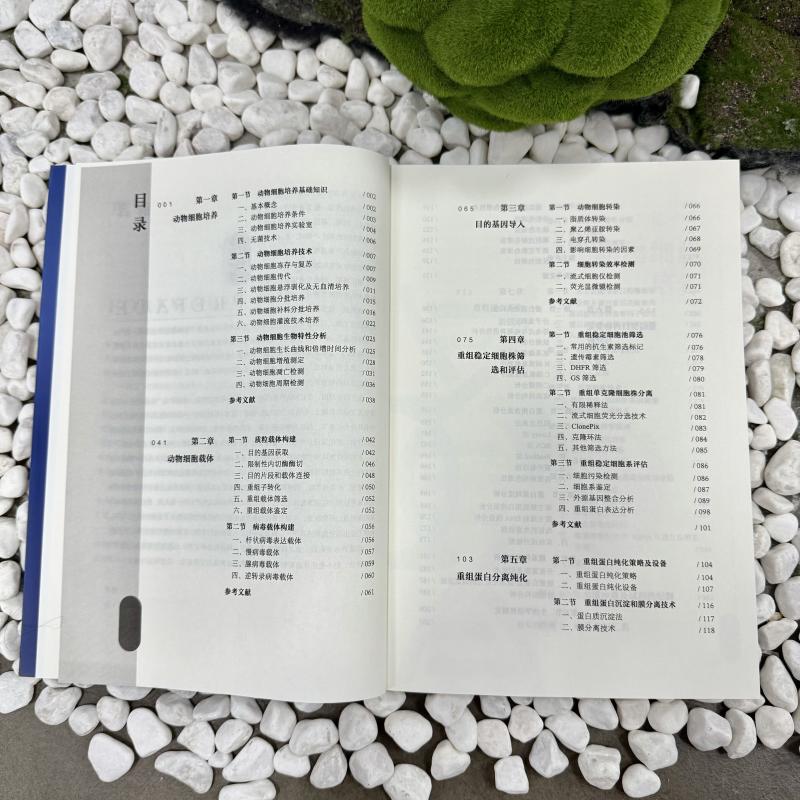 目录
001 第一章
动物细胞培养
第一节 动物细胞培养基础知识 / 002
一、基本概念 / 002
二、动物细胞培养条件 / 003
三、动物细胞培养实验室 / 004
四、无菌技术 / 006
第二节 动物细胞培养技术 / 007
一、动物细胞冻存与复苏 / 007
二、动物细胞传代 / 009
三、动物细胞悬浮驯化及无血清培养 / 011
四、动物细胞分批培养 / 015
五、动物细胞补料分批培养 / 016
六、动物细胞灌流技术培养 / 022
第三节 动物细胞生物特性分析 / 025
一、动物细胞生长曲线和倍增时间分析 / 025
二、动物细胞增殖测定 / 028
三、动物细胞凋亡检测 / 031
四、动物细胞周期检测 / 036
参考文献 / 038
041 第二章
动物细胞载体
第一节 质粒载体构建 / 042
一、目的基因获取 / 042
二、限制性内切酶酶切 / 046
三、目的片段和载体连接 / 048
四、重组子转化 / 050
五、重组载体筛选 / 052
六、重组载体鉴定 / 052
第二节 病毒载体构建 / 056
一、杆状病毒表达载体 / 056
二、慢病毒载体 / 057
三、腺病毒载体 / 059
四、逆转录病毒载体 / 060
参考文献 / 061
065 第三章
目的基因导入
第一节 动物细胞转染 / 066
一、脂质体转染 / 066
二、聚乙烯亚胺转染 / 067
三、电穿孔转染 / 068
四、影响细胞转染的因素 / 069
第二节 细胞转染效率检测 / 070
一、流式细胞仪检测 / 071
二、荧光显微镜检测 / 071
参考文献 / 072
075 第四章
重组稳定细胞株筛
选和评估
第一节 重组稳定细胞池筛选 / 076
一、常用的抗生素筛选标记 / 076
二、遗传霉素筛选 / 078
三、DHFR 筛选 / 079
四、GS 筛选 / 080
第二节 重组单克隆细胞株分离 / 081
一、有限稀释法 / 081
二、流式细胞荧光分选技术 / 082
三、ClonePix / 083
四、克隆环法 / 084
五、其他筛选方法 / 085
第三节 重组稳定细胞系评估 / 086
一、细胞污染检测 / 086
二、细胞系鉴定 / 087
三、外源基因整合分析 / 089
四、重组蛋白表达分析 / 098
参考文献 / 101
103 第五章
重组蛋白分离纯化
第一节 重组蛋白纯化策略及设备 / 104
一、重组蛋白纯化策略 / 104
二、重组蛋白纯化设备 / 107
第二节 重组蛋白沉淀和膜分离技术 / 116
一、蛋白质沉淀法 / 117
二、膜分离技术 / 118